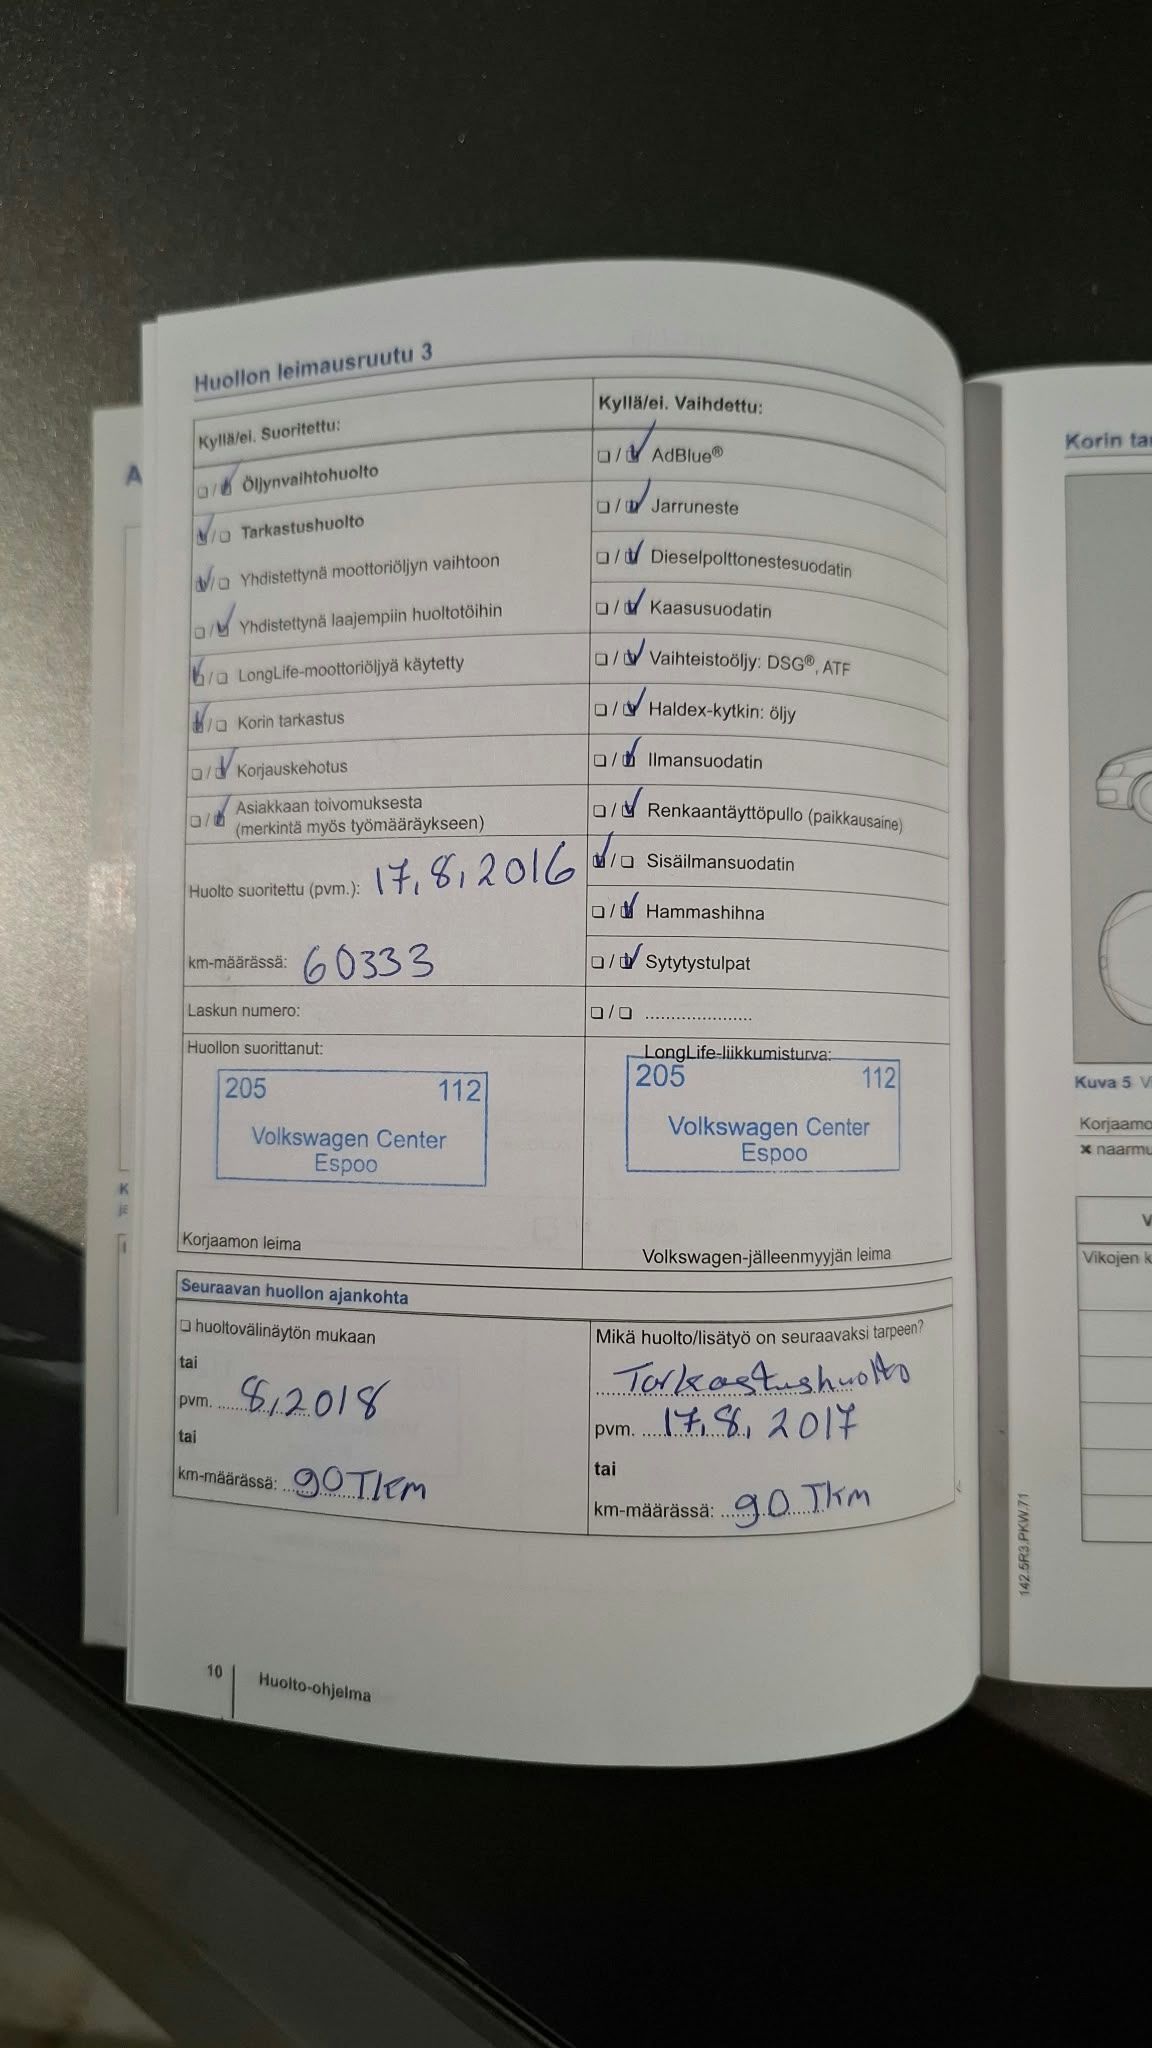 Huollon leimausruutu 3
Kyllä/ei. Suoritettu:
❏ / ☑ Öljynvaihtohuolto
☑ / ❏ Tarkastushuolto
☑ / ❏ Yhdistettynä moottoriöljyn vaihtoon
❏ / ☑ Yhdistettynä laajempiin huoltotöihin
☑ / ❏ LongLife-moottoriöljyä käytetty
☑ / ❏ Korin tarkastus
❏ / ☑ Korjauskehotus
❏ / ☑ Asiakkaan toivomuksesta
(merkintä myös työmääräykseen)
Huolto suoritettu (pvm.): 17.8.2016
km-määrässä: 60333
Laskun numero:
Huollon suorittanut:
205 112
Volkswagen Center
Espoo
Korjaamon leima
Kyllä/ei. Vaihdettu:
❏ / ☑ AdBlue®
❏ / ☑ Jarruneste
❏ / ☑ Dieselpolttonestesuodatin
❏ / ☑ Kaasusuodatin
❏ / ☑ Vaihteistoöljy: DSG®, ATF
❏ / ☑ Haldex-kytkin: öljy
❏ / ☑ Ilmansuodatin
❏ / ☑ Renkaantäyttöpullo (paikkausaine)
☑ / ❏ Sisäilmansuodatin
❏ / ☑ Hammashihna
❏ / ☑ Sytytystulpat
❏ / ❏ .....................
LongLife-liikkumisturva:
205 112
Volkswagen Center
Espoo
Volkswagen-jälleenmyyjän leima
Seuraavan huollon ajankohta
❏ huoltovälinäytön mukaan
tai
pvm. 8.2018
tai
km-määrässä: 90 Tkm
Mikä huolto/lisätyö on seuraavaksi tarpeen?
Tarkastushuolto
pvm. 17.8.2017
tai
km-määrässä: 90 Tkm
10 Huolto-ohjelma
142.5R3.PKW.71
Korin
Kuva 5
Korjaamo
Vikojen